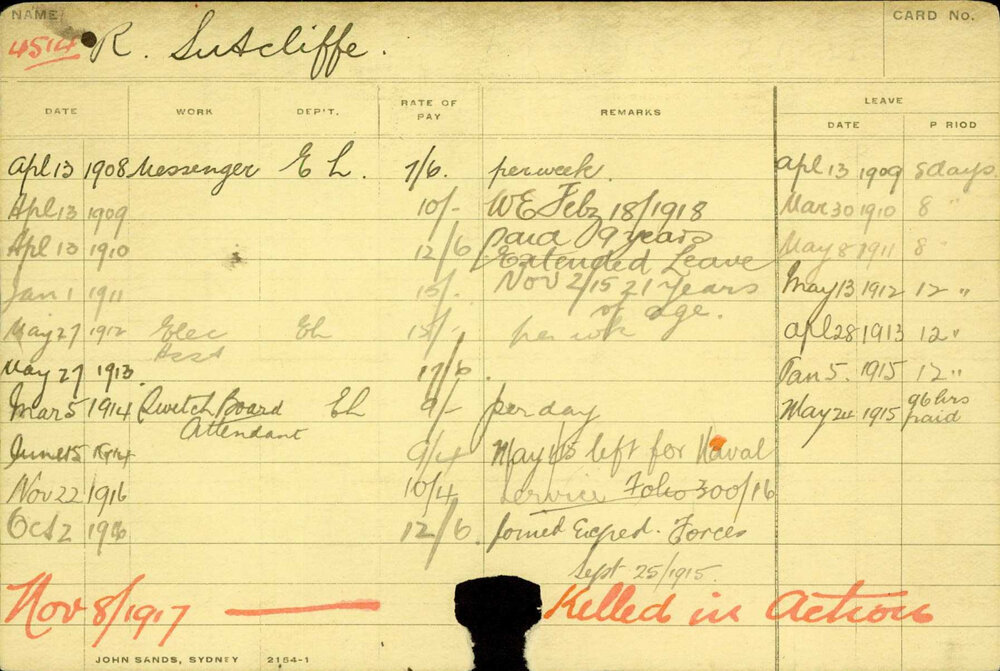 NAME
CARD No.
4514 R. Sutcliffe.
LEAVE
DATE WORK DEP'T. RATE OF PAY REMARKS DATE P RIOD
Apl 13 1908 Messenger E L. 7/6. per week. Apl 13 1909 8 days
Apl 13 1909 10/- W E Feby 18/1918 Mar 30 1910 8 "
Apl 13 1910 12/6 paid 9 years May 8 1911 8 "
Extended Leave
Jan 1 1911 15/- Nov 2/15 21 years May 13 1912 12 "
of age.
May 27 1912 Elec EL 15/- per wk Apl 28 1913 12 "
Asst
May 27 1913 17/6 Jan 5. 1915 12 "
Mar 5 1914 Switch Board EL 9/- per day May 24 1915 96 hrs paid
Attendant
June 15 1914 9/4 May 1/15 left for Naval
Nov 22 1916 10/4 Service Folio 300/16
Oct 2 1916 12/6 Joined Exped. Forces
Sept 25/1915.
Nov 8/1917 — Killed in Action
JOHN SANDS, SYDNEY 2154-1